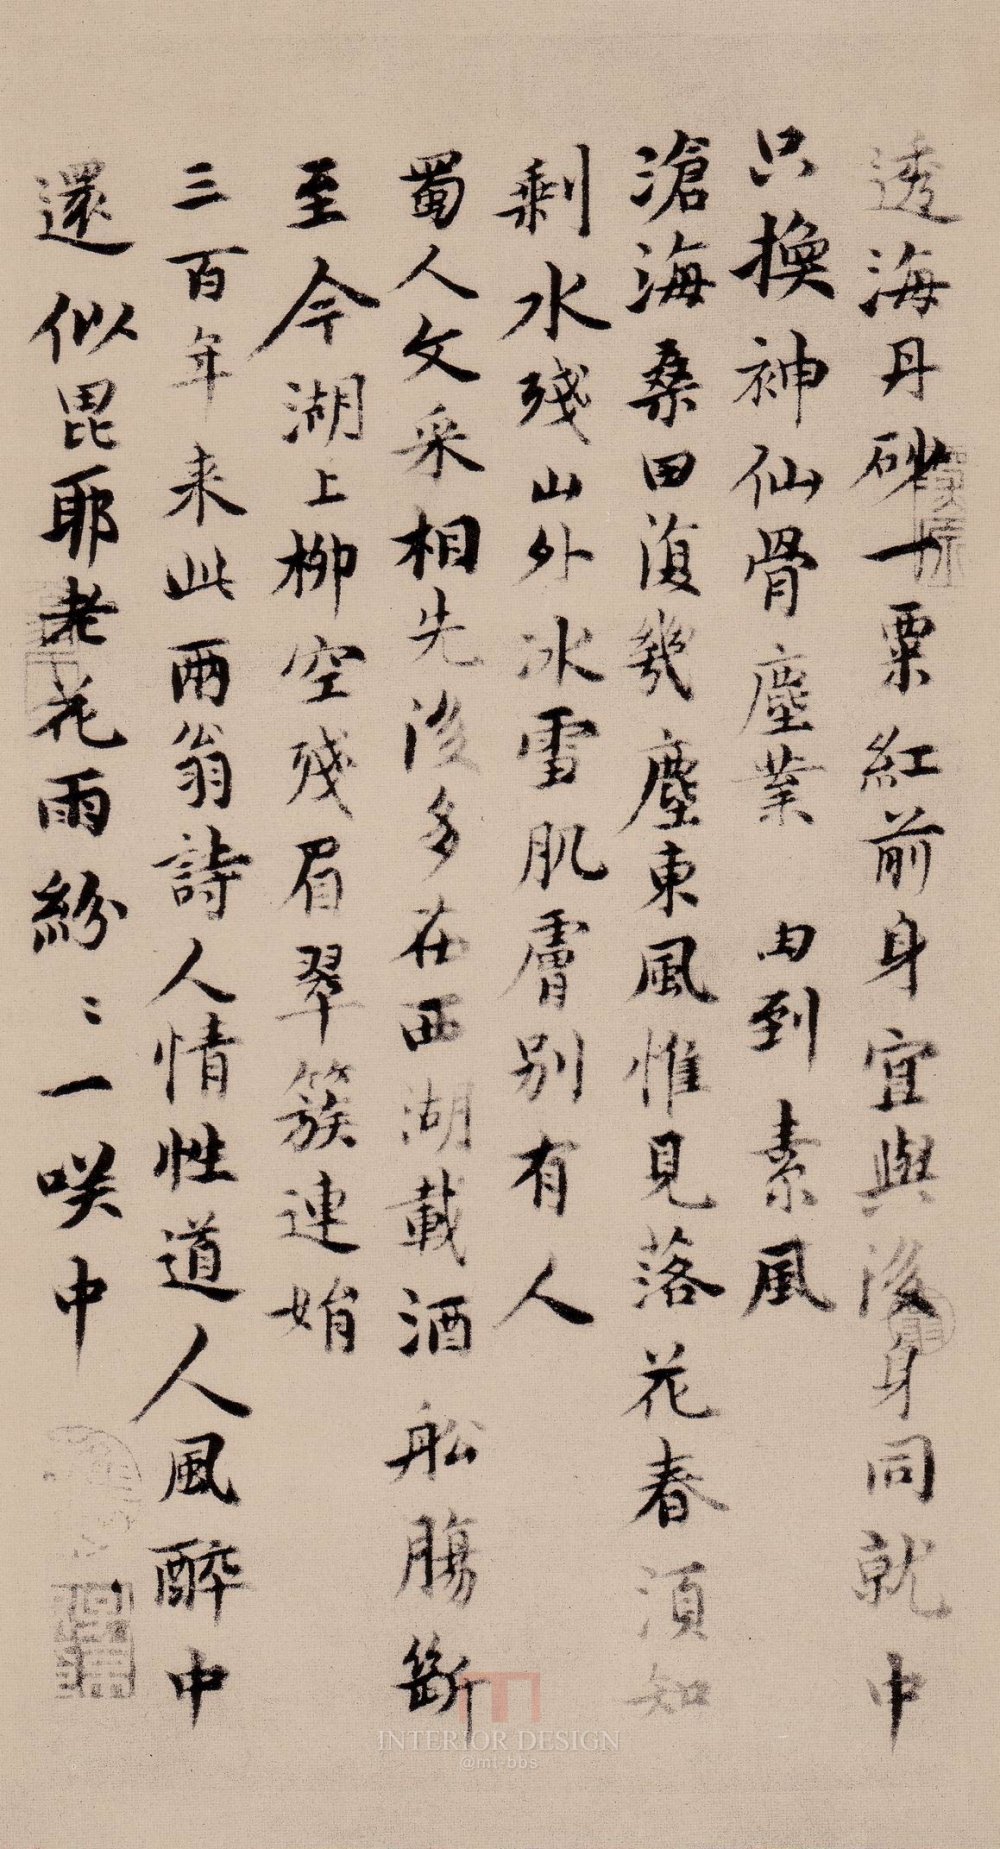 透海丹砂一粟紅前身宜與後身同就中
只換神仙骨塵業 由到素風
滄海桑田復幾塵東風惟見落花春須知
剩水殘山外冰雪肌膚別有人
蜀人文采相先後多在西湖載酒船腸斷
至今湖上柳空殘眉翠簇連娟
三百年来此兩翁詩人情性道人風醉中
還似毘耶老花雨紛〻一咲中
INTERIOR DESIGN
@mt-bbs